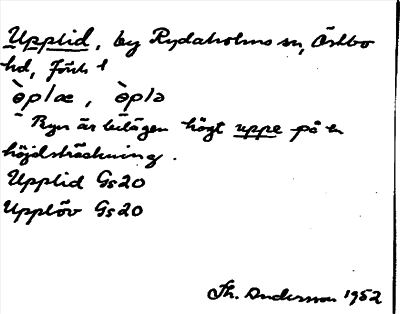 Upplid, by Rydaholms sn, Östbo
hd, Jönk l
ə̀p/æ, ə̀p/ə
Byn är belägen högt uppe på en
höjdsträckning.
Upplid Gs20
Upplöv Gs20
Th. Andersson 1952